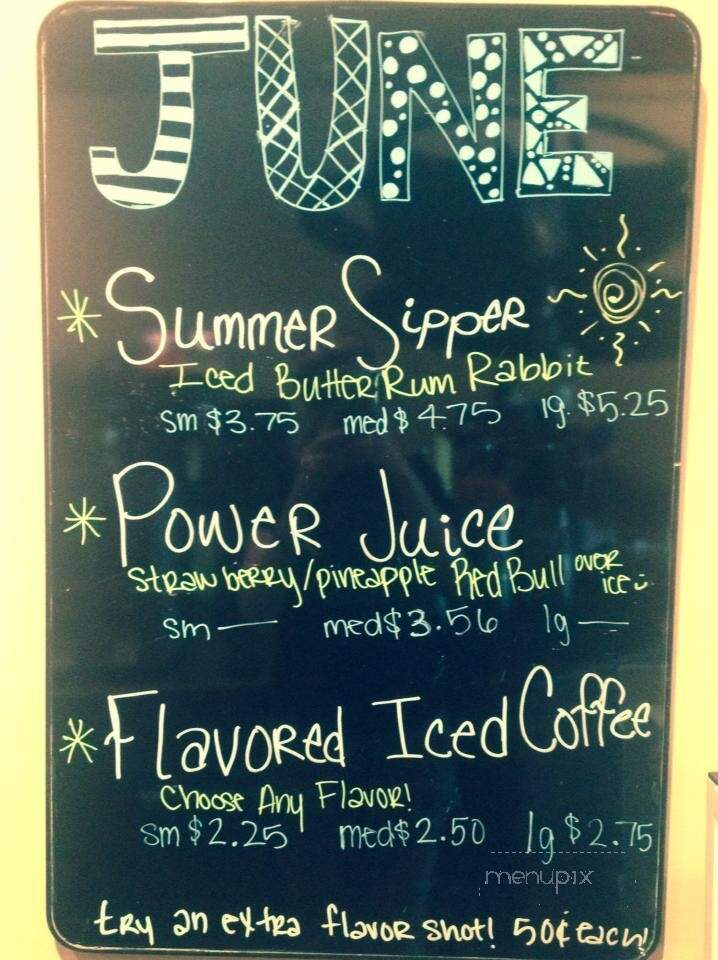 JUNE
* Summer Sipper
Iced Butter Rum Rabbit
sm $3.75 med $4.75 lg. $5.25
* Power Juice
Strawberry/pineapple Red Bull over ice
sm — med $3.56 lg —
* Flavored Iced Coffee
Choose Any Flavor!
sm $2.25 med $2.50 lg $2.75
menupix
try an extra flavor shot! 50¢ each!